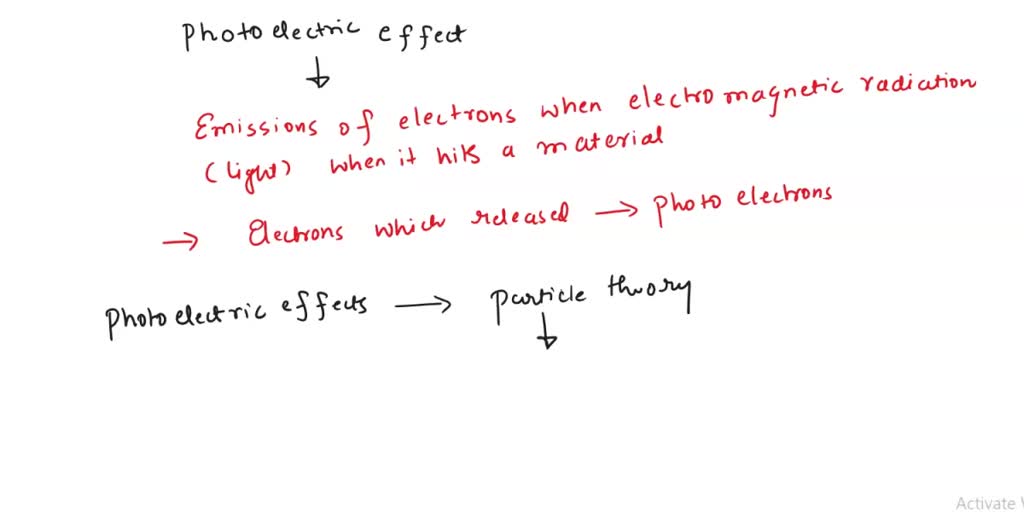 Photo electric effect
↓
Emissions of electrons when electro magnetic radiation
(light) when it hits a material
→ Electrons which released → photo electrons
Photo electric effects → particle theory
↓
Activate